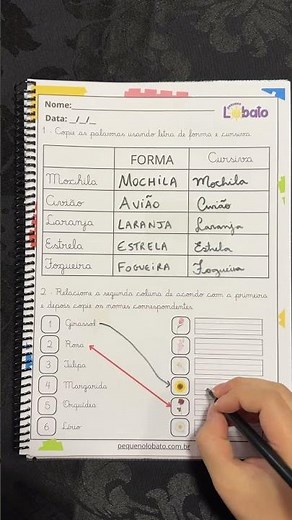 Nome:
Lobato
Data: _/_/_
1 - Copie as palavras usando letra de forma e cursiva.
FORMA Cursiva
Mochila MOCHILA Mochila
Avião AVIÃO Avião
Laranja LARANJA Laranja
Estrela ESTRELA Estrela
Fogueira FOGUEIRA Fogueira
2 - Relacione a segunda coluna de acordo com a primeira
e depois copie os nomes correspondentes.
1 Girassol
2 Rosa
3 Tulipa
4 Margarida
5 Orquídea
6 Lírio
pequenolobato.com.br